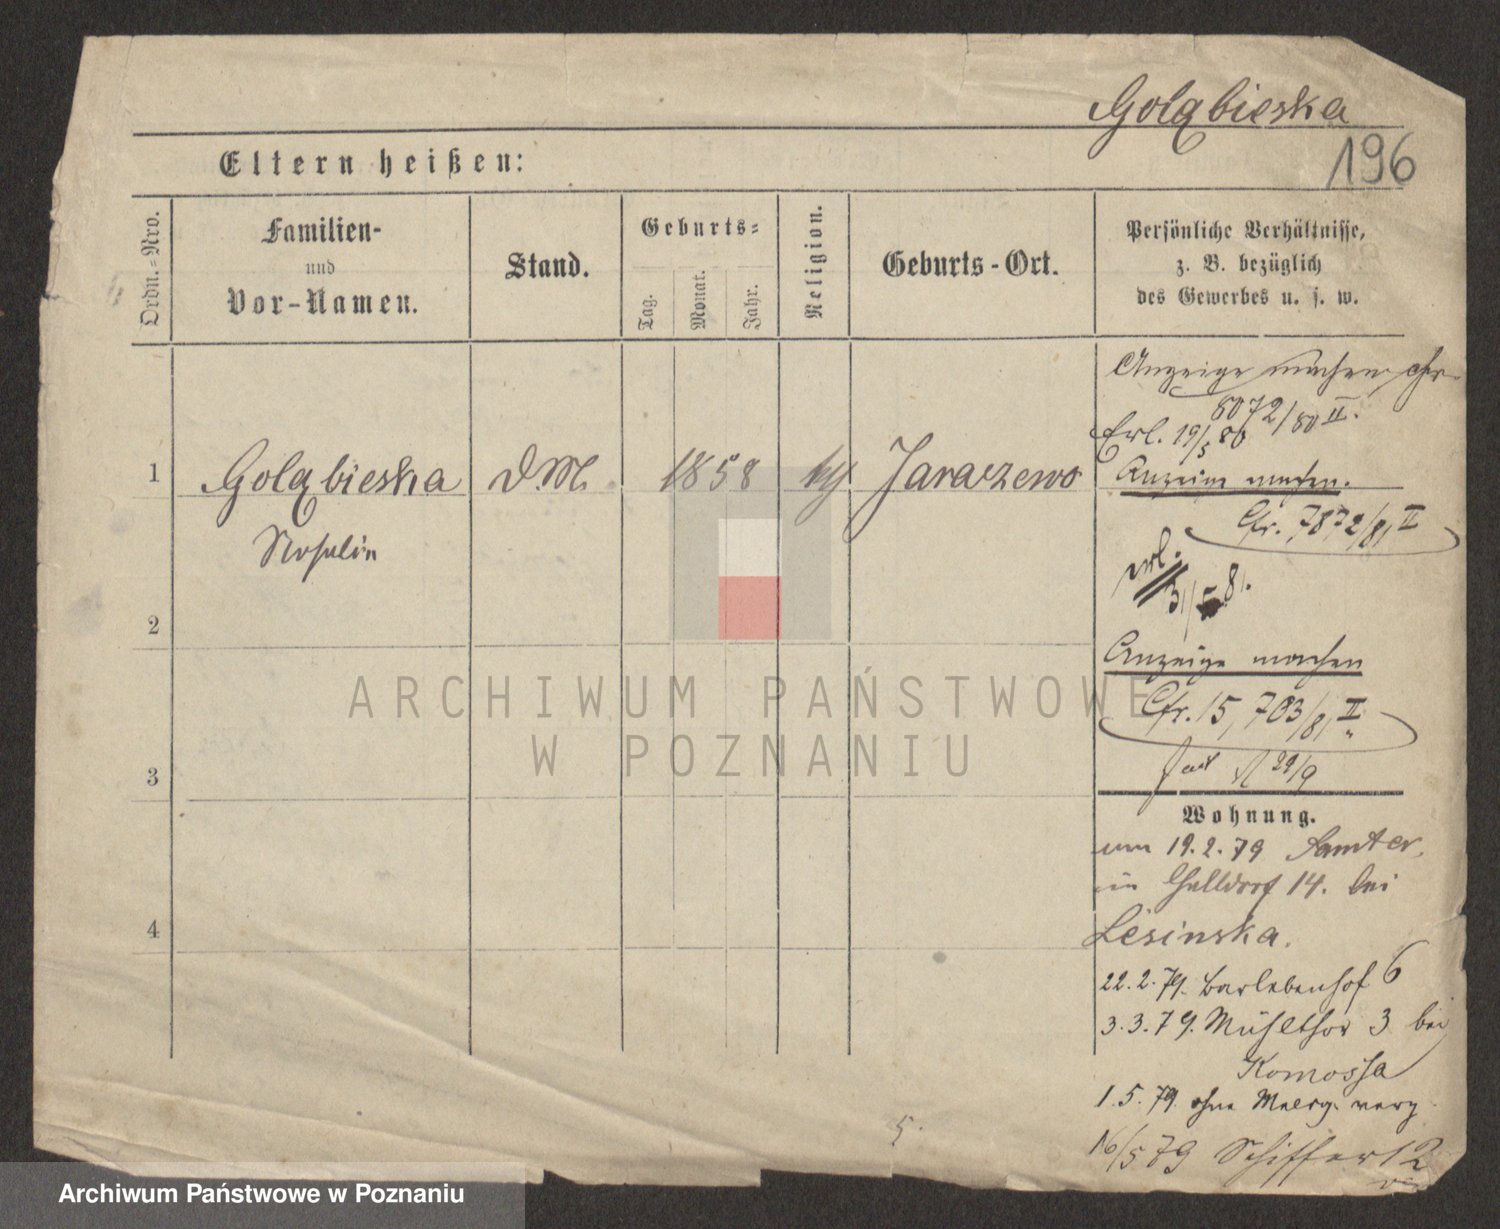 Goląbieska
196
Eltern heißen:
Ordn.-Nro.
Familien-
und
Vor-Namen.
Stand.
Geburts-
Tag.
Monat.
Jahr.
Religion.
Geburts-Ort.
Persönliche Verhältnisse,
z. B. bezüglich
des Gewerbes u. s. w.
1
Goląbieska
D.M.
1858
Jaraczewo
Rosalie
2
3
4
Anzeige machen cfr
8072/80 II.
Erl. 19/5 80
Anzeige machen.
Cfr. 7872/81 II
erl.
31/5 81.
Anzeige machen
Cfr. 15,703/81 II
29/9
Wohnung.
um 19.2.79 Samter
in Halldorf 14. bei
Lesinska.
22.2.79. Barlebenhof 6
3.3.79. Mühlthor 3 bei
Komossa
1.5.79. ohne Meldg. verz
16/5 79 Schifferst 2
ARCHIWUM PAŃSTWOWE
W POZNANIU
Archiwum Państwowe w Poznaniu